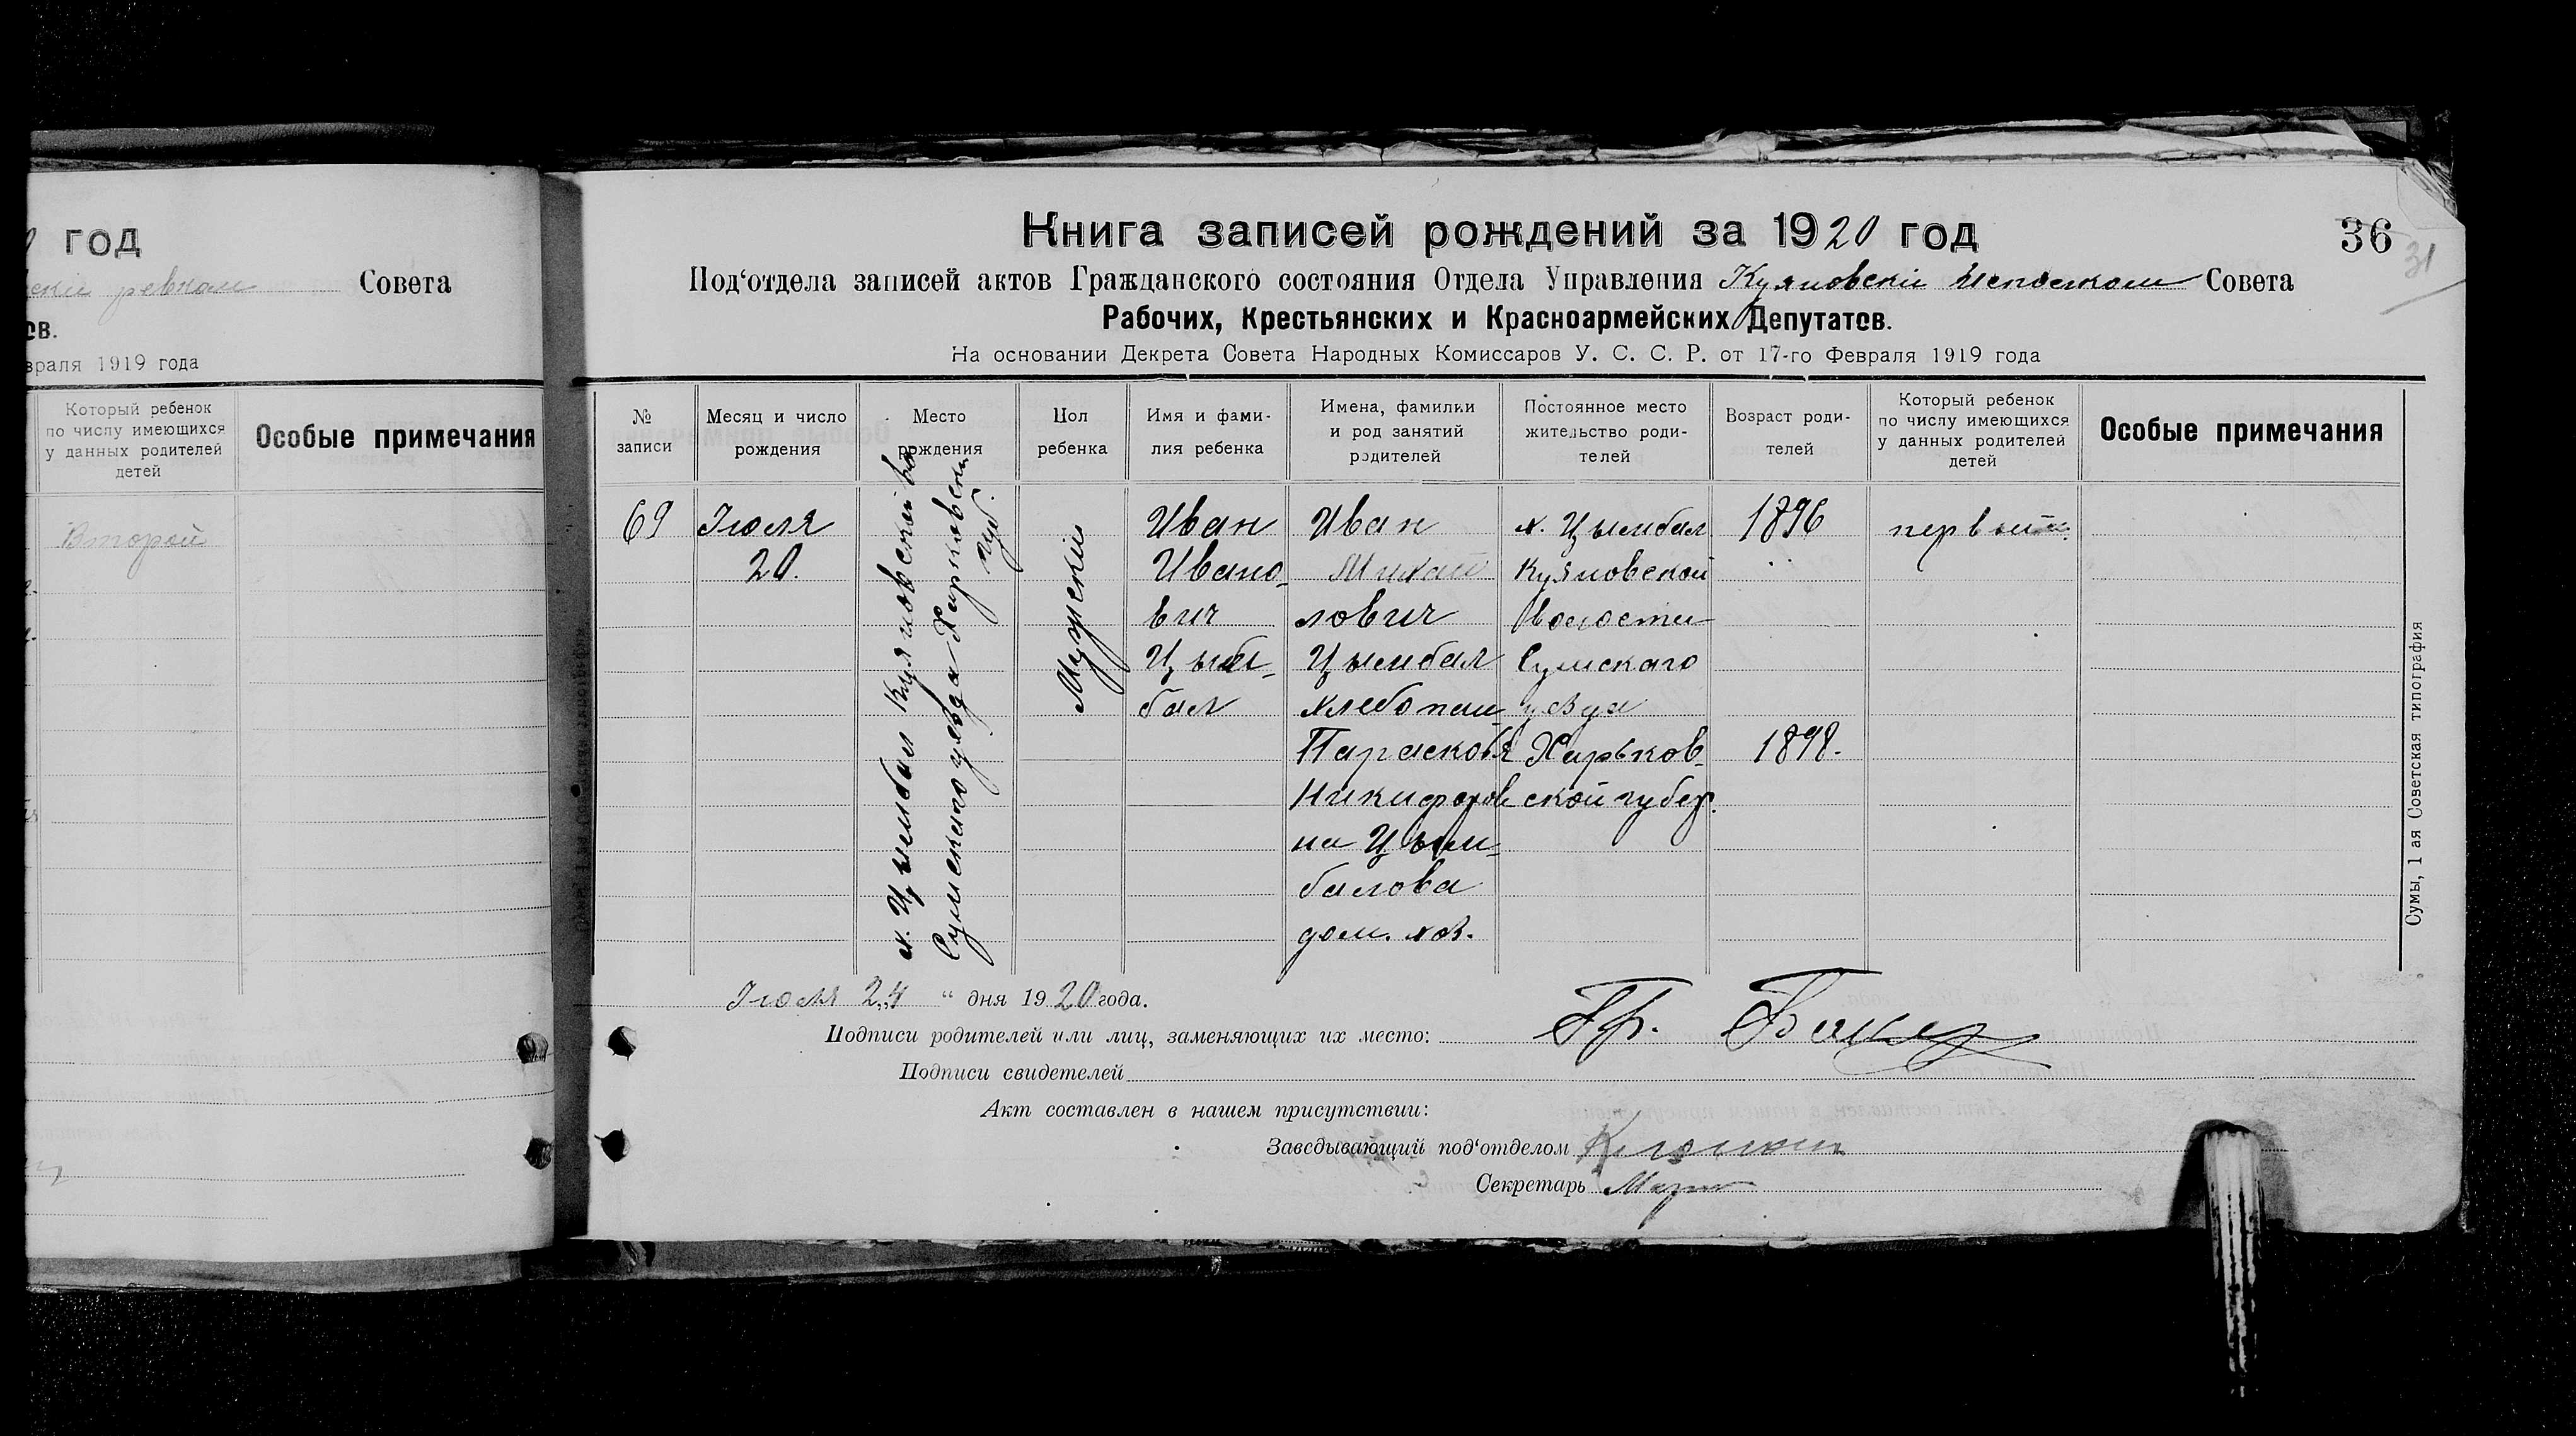 год
ревком Совета
ов.
враля 1919 года
Который ребенок
по числу имеющихся
у данных родителей
детей
Особые примечания
Второй
Книга записей рождений за 1920 год
36
31
Под‘отдела записей актов Гражданского состояния Отдела Управления Куяновскій Исполком Совета
Рабочих, Крестьянских и Красноармейских Депутатов.
На основании Декрета Совета Народных Комиссаров У. С. С. Р. от 17-го Февраля 1919 года
№
записи
Месяц и число
рождения
Место
рождения
Пол
ребенка
Имя и фами-
лия ребенка
Имена, фамилии
и род занятий
родителей
Постоянное место
жительство роди-
телей
Возраст роди-
телей
Который ребенок
по числу имеющихся
у данных родителей
детей
Особые примечания
69
Іюля
20.
х. Цымбал Куяновской во
Сумского уезда Харьковск
губ.
Мужскій
Иван
Ивано-
вич
Цым-
бал
Иван
Михай
лович
Цымбал
хлебопаш
Парасковья
Никифоров
на Цым-
балова
дом. хоз.
х. Цымбал
Куяновской
волости
Сумскаго
уезда
Харьков-
ской губер.
1896
1898.
первый
Іюля 24 “ дня 1920 года.
Подписи родителей или лиц, заменяющих их место: Гр.
Подписи свидетелей
Акт составлен в нашем присутствии:
Заведывающий под‘отделом
Секретарь
Сумы, 1 ая Советская типография